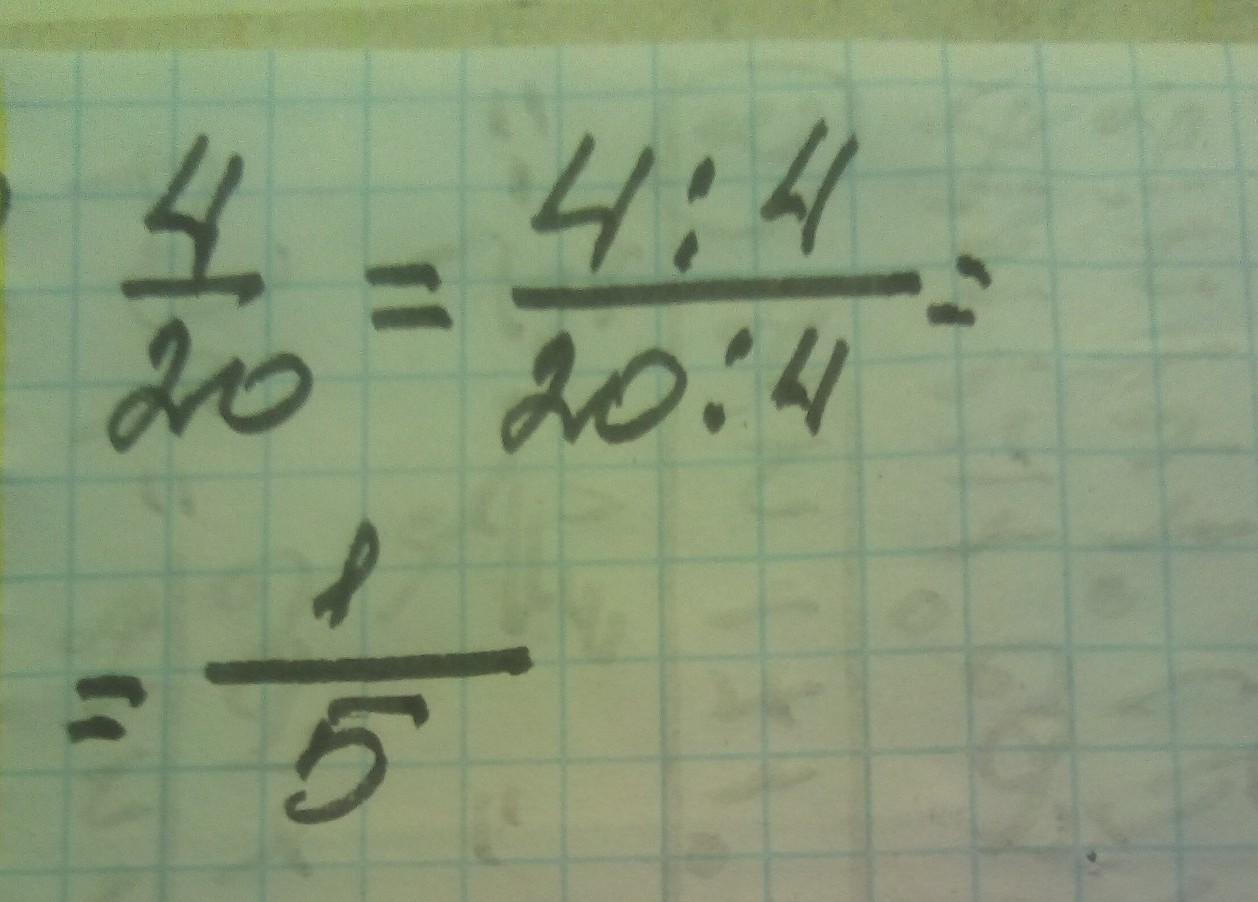 4/20 = 4:4/20:4 =
= 1/5